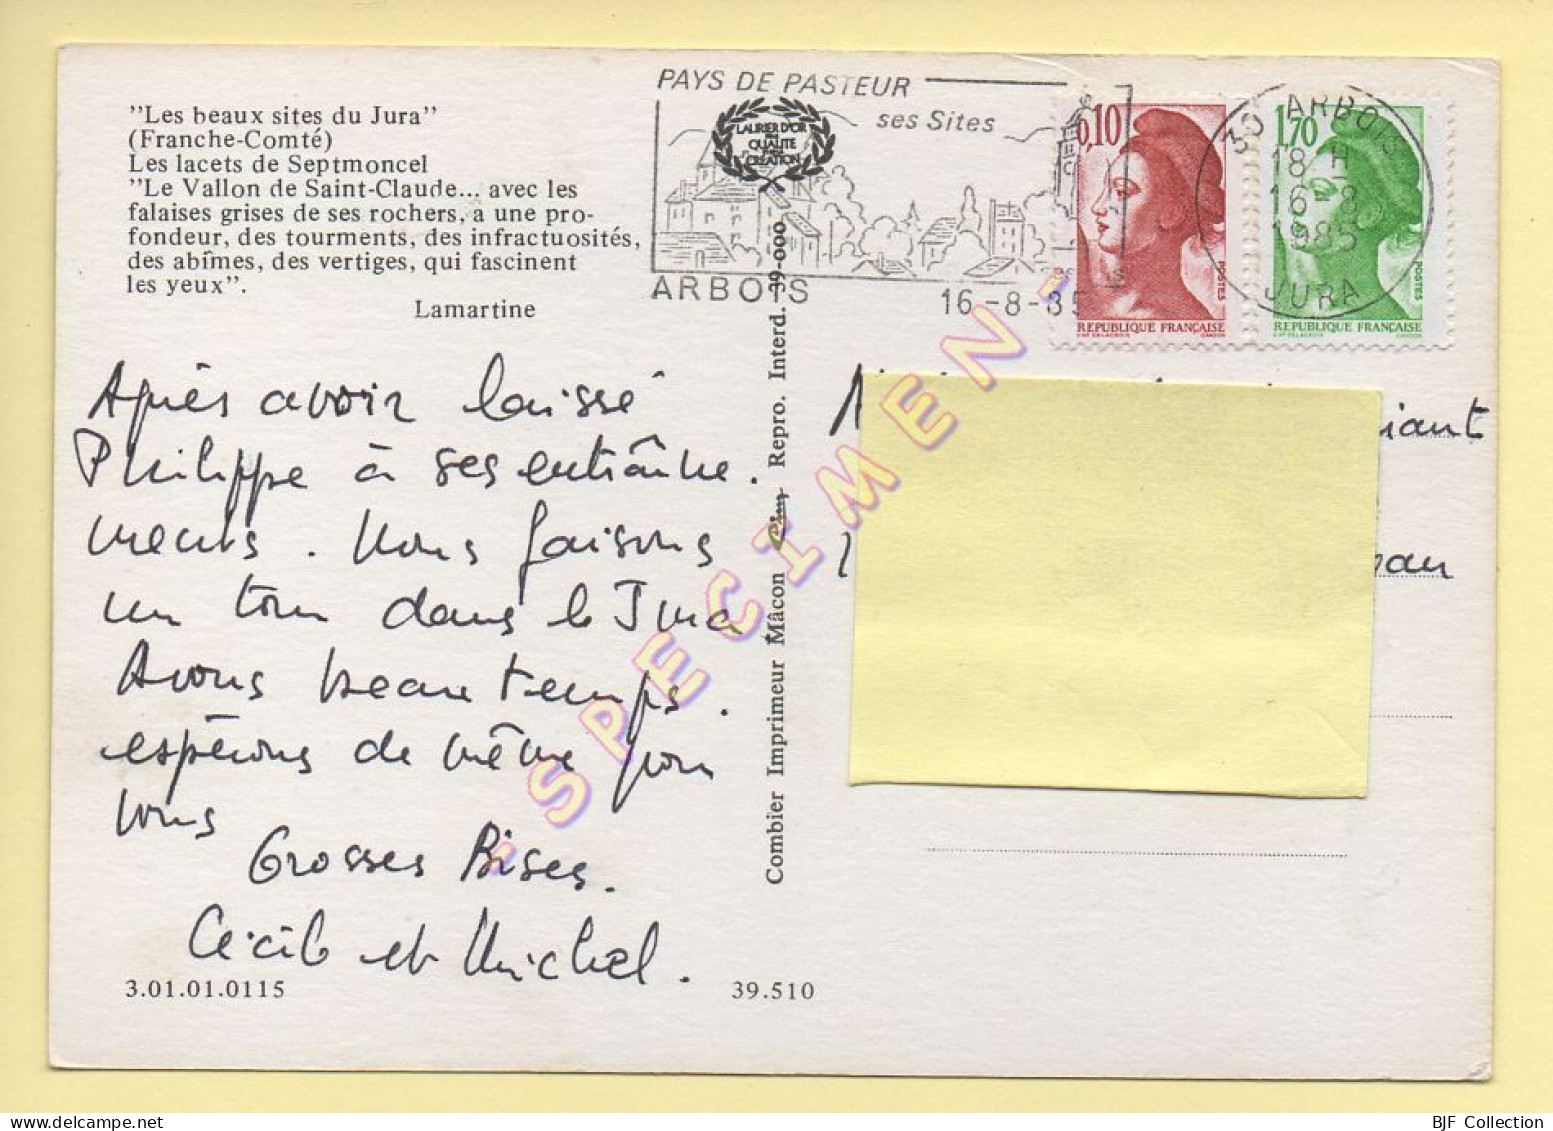 "Les beaux sites du Jura"
(Franche-Comté)
Les lacets de Septmoncel
"Le Vallon de Saint-Claude... avec les
falaises grises de ses rochers, a une pro-
fondeur, des tourments, des infractuosités,
des abîmes, des vertiges, qui fascinent
les yeux".
Lamartine
PAYS DE PASTEUR
ses Sites
LAURIER D'OR
DE
QUALITÉ
CRÉATION
ARBOIS
16-8-85
0,10
REPUBLIQUE FRANÇAISE
POSTES
1,70
REPUBLIQUE FRANÇAISE
POSTES
39 ARBOIS
18 H
16-8
1985
JURA
Après avoir laissé
Philippe à ses entraîne.
ments. Nous faisons
un tour dans le Jura
Avons beau temps.
espérons de même pour
vous
Grosses Bises.
Cécile et Michel.
3.01.01.0115
39.510
Combier Imprimeur Mâcon Cim Repro. Interd. 39-000
- SPECIMEN -
BJF Collection